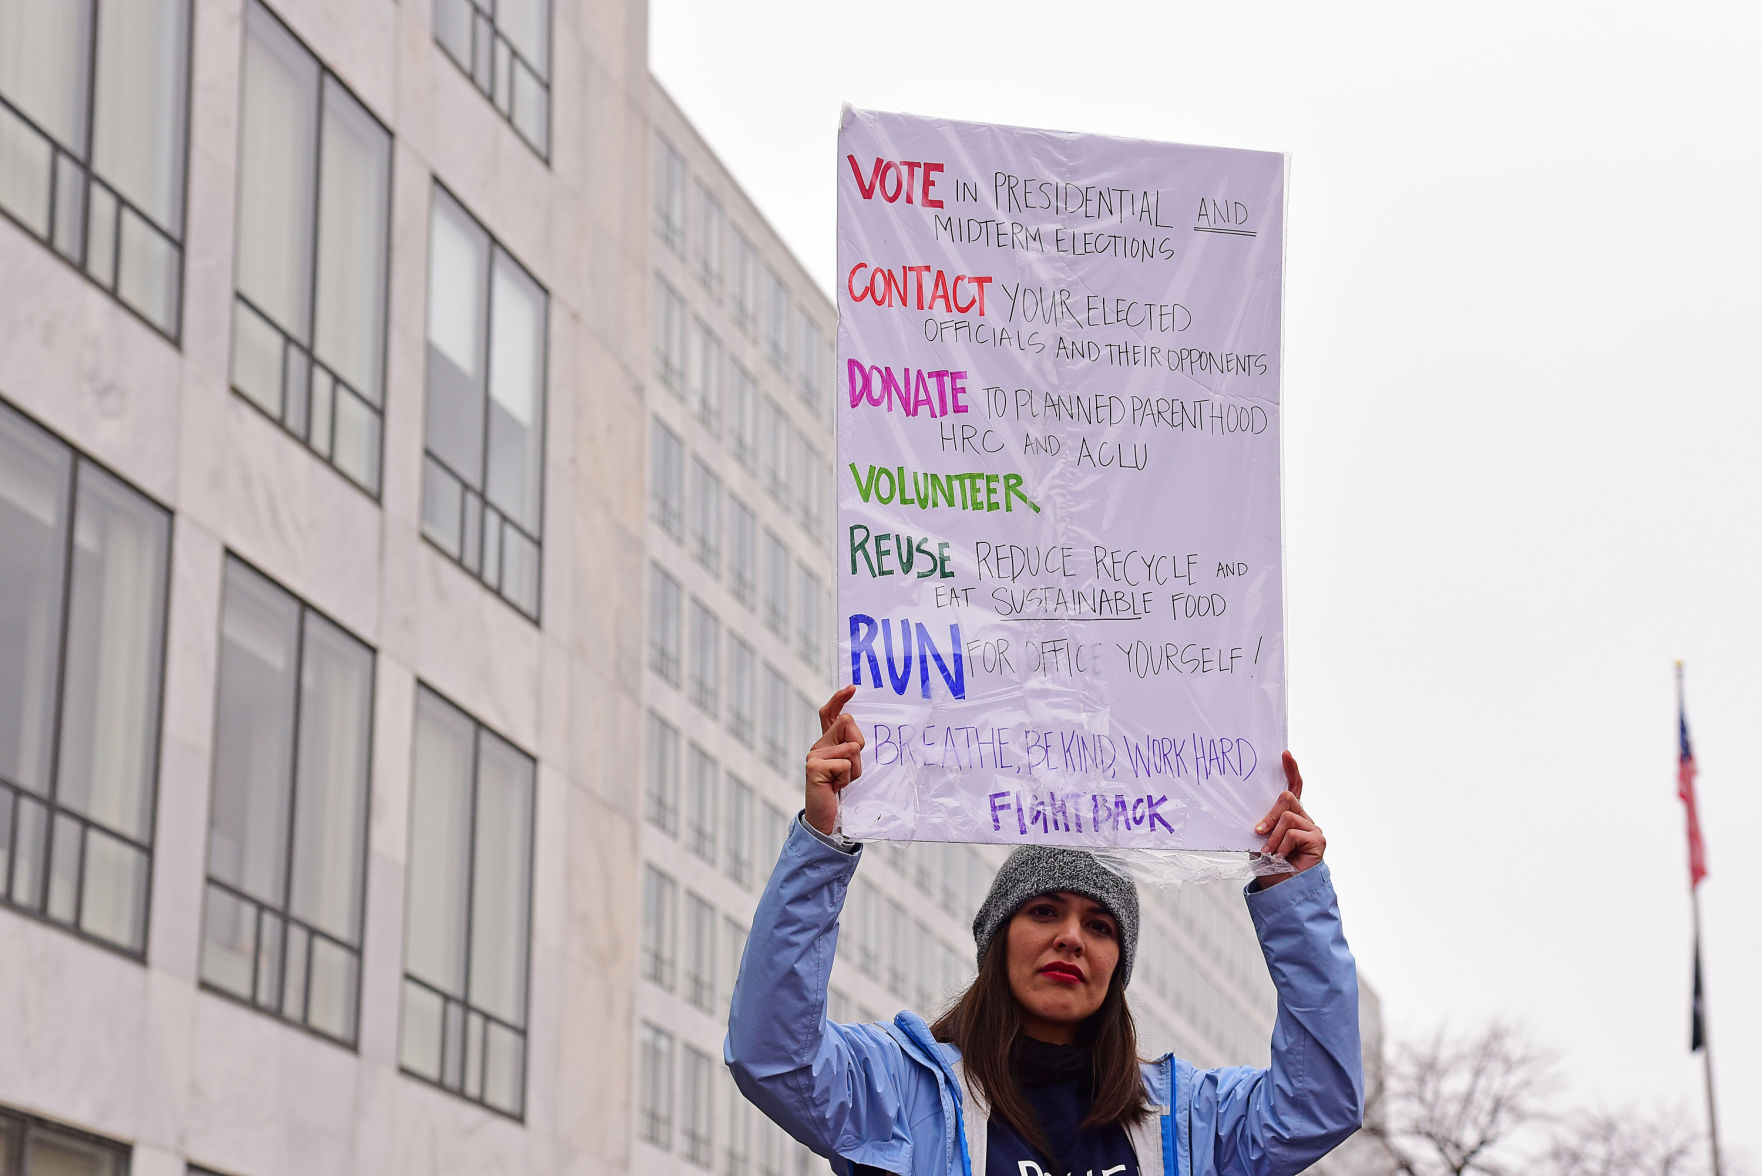 VOTE IN PRESIDENTIAL AND
MIDTERM ELECTIONS
CONTACT YOUR ELECTED
OFFICIALS AND THEIR OPPONENTS
DONATE TO PLANNED PARENTHOOD
HRC AND ACLU
VOLUNTEER
REUSE REDUCE RECYCLE AND
EAT SUSTAINABLE FOOD
RUN FOR OFFICE YOURSELF!
BREATHE, BE KIND, WORK HARD
FIGHT BACK